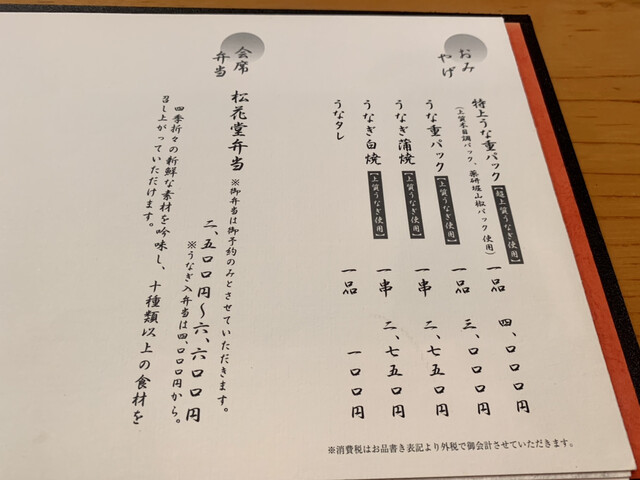 おみやげ
特上うな重パック【超上質うなぎ使用】 一品 四、〇〇〇円
(上質木目調パック、薬研堀山椒パック使用)
うな重パック【上質うなぎ使用】 一品 三、〇〇〇円
うなぎ蒲焼【上質うなぎ使用】 一串 二、七五〇円
うなぎ白焼【上質うなぎ使用】 一串 二、七五〇円
うなタレ 一品 一〇〇円
会席弁当
松花堂弁当 ※御弁当は御予約のみとさせていただきます。
二、五〇〇円〜六、六〇〇円
※うなぎ入弁当は四、〇〇〇円から。
四季折々の新鮮な素材を吟味し、十種類以上の食材を
召し上がっていただけます。
※消費税はお品書き表記より外税で御会計させていただきます。